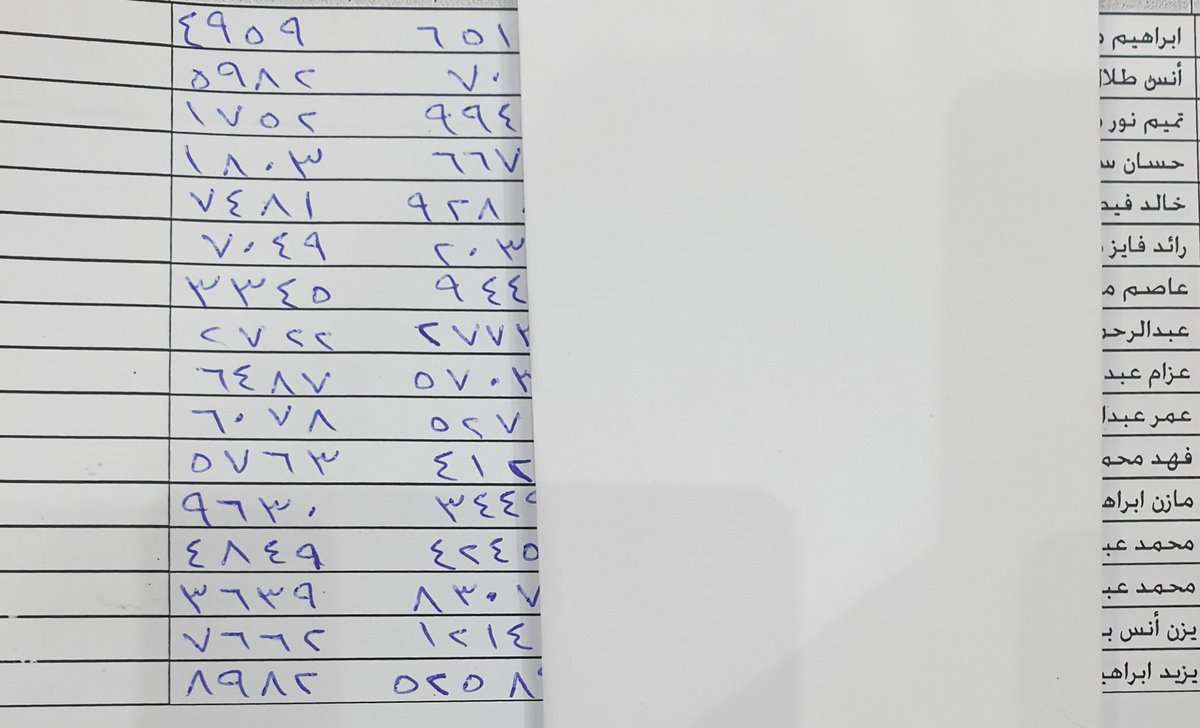 ابراهيم ٦٥١ ٤٩٥٩
أنس طلال ٧٠ ٥٩٨٢
تميم نور ٩٩٤ ١٧٥٢
حسان س ٦٦٧ ١٨٠٣
خالد فيص ٩٢٨ ٧٤٨١
رائد فايز ٢٠٣ ٧٠٤٩
عاصم م ٩٤٤ ٣٣٤٥
عبدالرحم ٢٧٧ ٢٧٢٢
عزام عبد ٥٧٠ ٦٤٨٧
عمر عبدا ٥٢٧ ٦٠٧٨
فهد محم ٤١٢ ٥٧٦٣
مازن ابراه ٣٤٤ ٩٦٣٠
محمد عب ٤٢٤٥ ٤٨٤٩
محمد عب ٨٣٠٧ ٣٦٣٩
يزن أنس ب ١٢١٤ ٧٦٦٢
يزيد ابراهي ٥٢٥٨ ٨٩٨٢